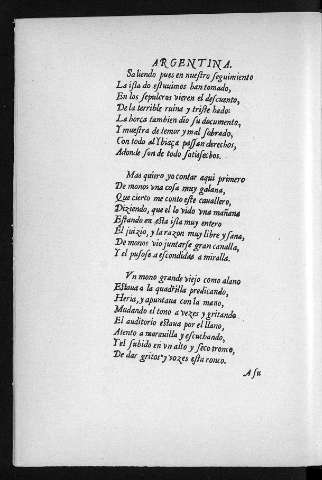 ARGENTINA.
Saliendo pues en nuestro seguimiento
La isla do estuuimos han tomado,
En los sepulcros vieron el descuento,
De la terrible ruina y triste hado:
La horca tambien dio su documento,
Y muestra de temor y mal sobrado,
Con todo al Ybiaça passan derechos,
Adonde son de todo satisfechos.
Mas quiero yo contar aqui primero
De monos vna cosa muy galana,
Que cierto me conto este cauallero,
Diziendo, que el lo vido vna mañana
Estando en esta isla muy entero
El juizio, y la razon muy libre y sana,
De monos vio juntarse gran canalla,
Y el pusose a escondidas a miralla.
Vn mono grande viejo como alano
Estaua a la quadrilla predicando,
Heria, y apuntaua con la mano,
Mudando el tono a vezes y gritando
El auditorio estaua por el llano,
Atento a marauilla y escuchando,
Y el subido en vn alto y seco tronco,
De dar gritos y vozes esta ronco.
A su